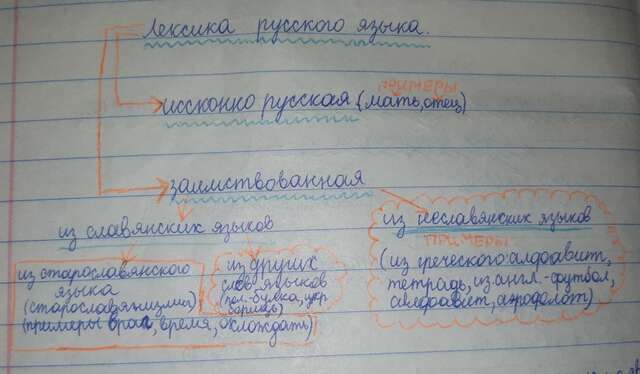 Лексика русского языка.
ПРИМЕРЫ
иссконко русская (мать, отец)
заимствованная
из славянских языков
из неславянских языков
ПРИМЕРЫ
(из греческого-алфавит,
тетрадь, из англ.-футбол,
аэрофлот)
из старославянского
языка
(старославянизмы)
(примеры враг, время, охлождать)
из других
слав. языков
(пол.-булка, укр.
борищь)